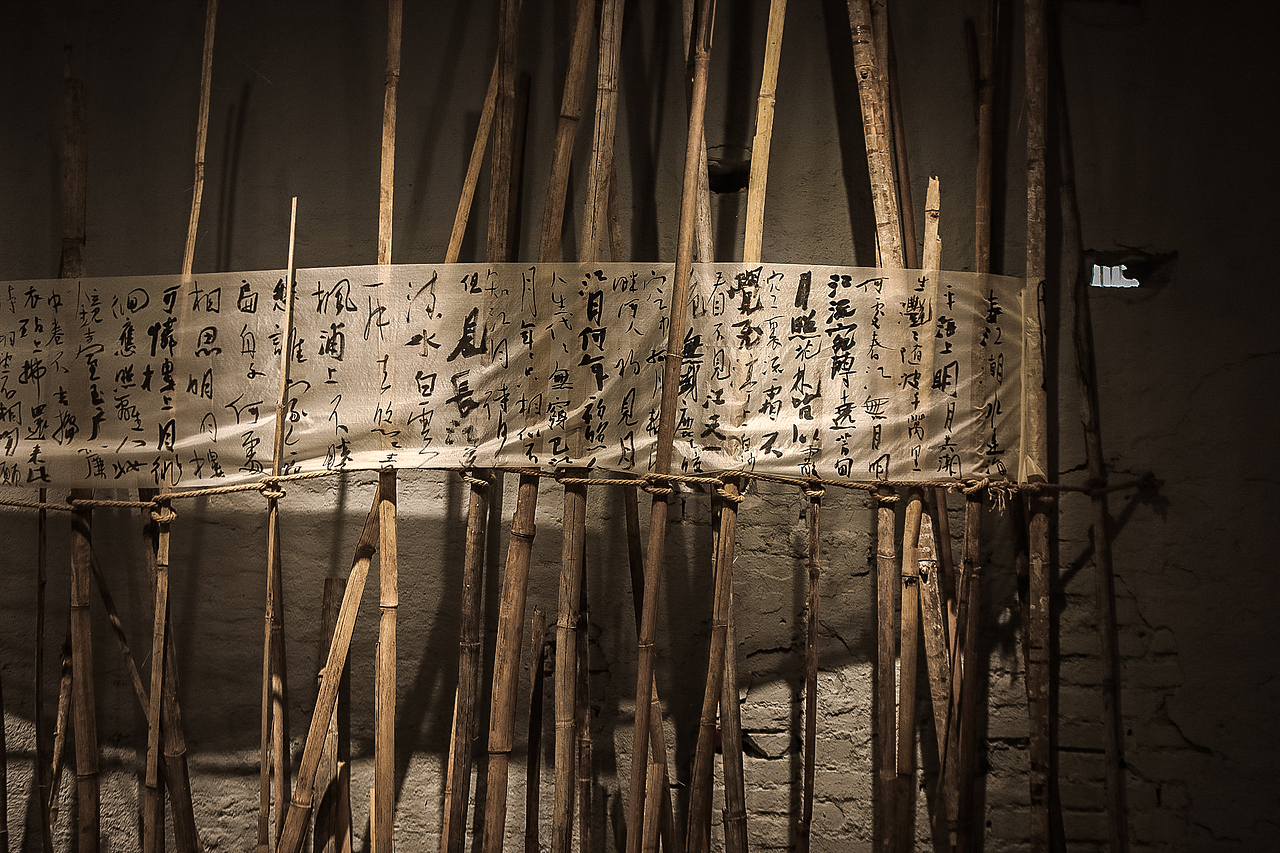 春江潮水連海
平海上明月共潮
生灧灧隨波千萬里
何處春江無月明
江流宛轉遶芳甸
月照花林皆似霰
空裏流霜不
覺飛汀上白沙
看不見江天
色無纖塵皎
空中孤月輪
畔何人初見月
江月何年初照
人生代代無窮已江
月年年只相似不
知江月待何
但見長江
流水白雲
一片去悠悠
楓浦上不勝
愁誰家今夜
扁舟子何處
相思明月樓
可憐樓上月徘
徊應照離人妝
鏡臺玉戶簾
中卷不去擣
衣砧上拂還來此
時相望不相聞願